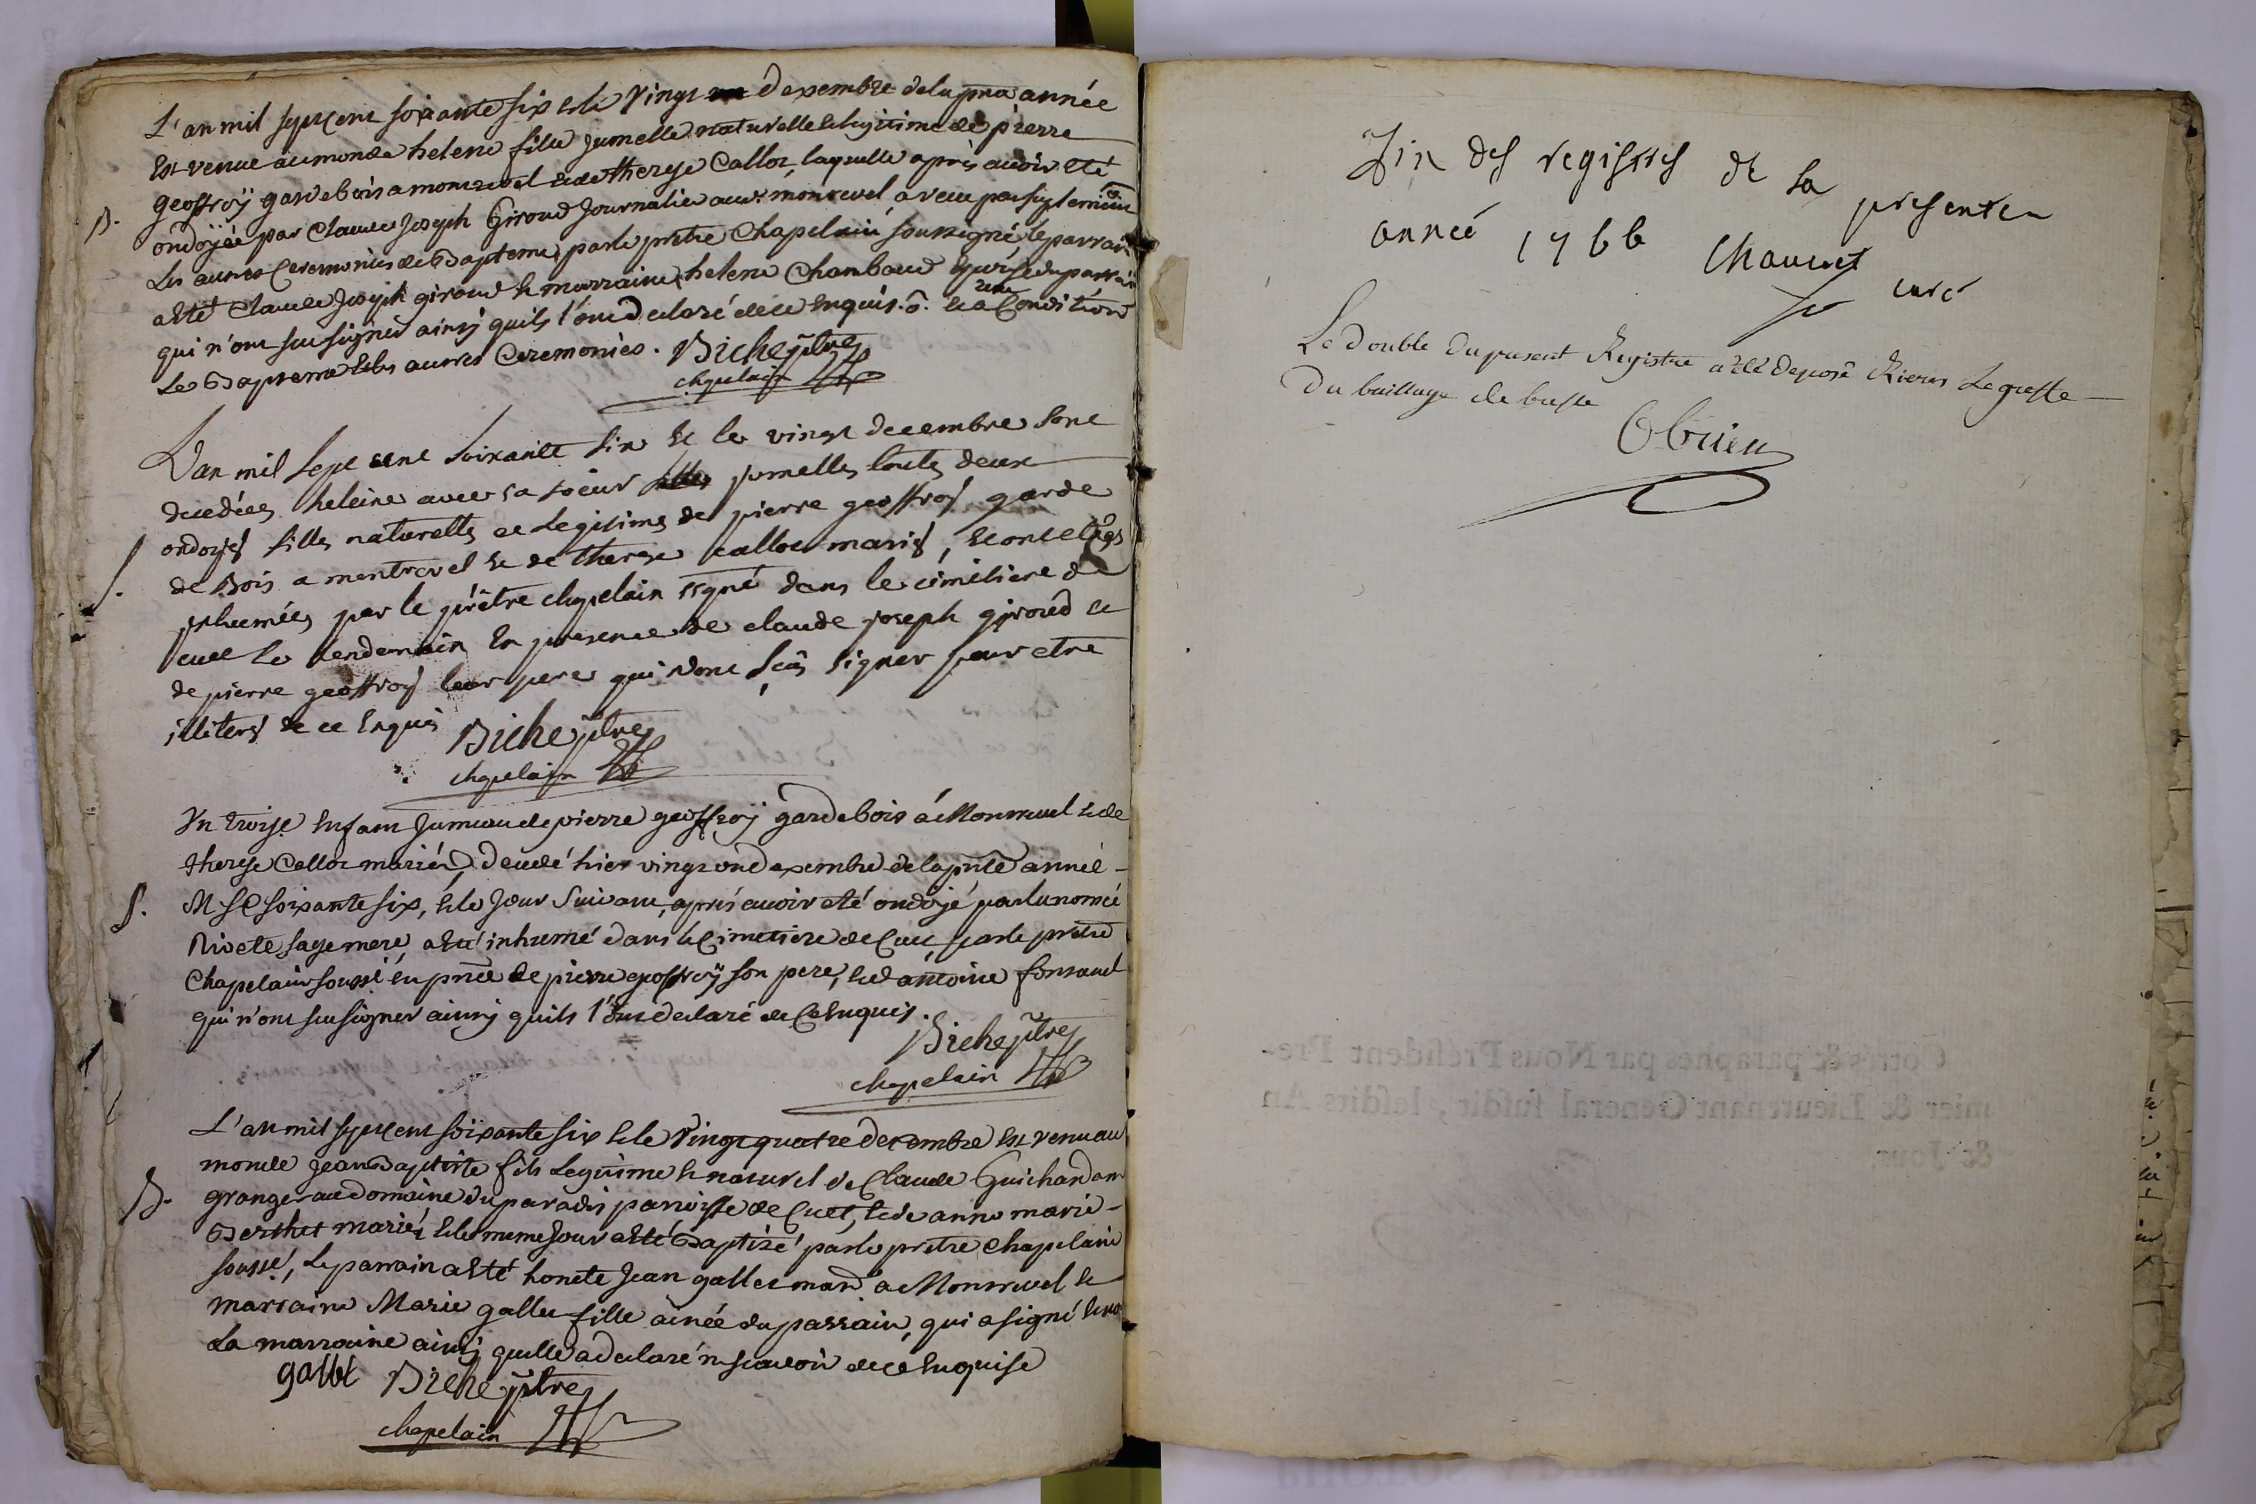 L'an mil septcent soixante six et le vingt decembre de la pnte année
Est venue au monde helene fille jumelle naturelle et legitime de pierre
geoffroÿ garde bois a montrevel et de therese Calloz, laquelle après avoir eté
B. ondoÿée par Claude Joseph Giroud Journalier audt montrevel, a receu par suplement
Les autres Ceremonies de Baptême, par le prêtre Chapelain soussigné le parrain
a eté Claude Joseph giroud et marraine helene Chambaud épouse du parrain
qui n'ont scu signer ainsÿ quils l'ont declaré de ce enquis. et a Condition
Le Bapteme et les autres Ceremonies. Biche ptre
chapelain
L'an mil sept cent soixante six et le vingt decembre sont
decedées heleine avec sa soeur jumelles toutes deux
ondoyés filles naturelles et Legitimes de pierre geoffroy garde
S. de Bois a montrevel et de therese calloz mariés, et ont etées
jnhumées par le prêtre chapelain ssgné dans le cimitiere de
cuet le lendemain En presence de claude joseph giroud et
de pierre geoffroy leur pere qui n'ont scûs signer pour etre
illiterés de ce Enquis Biche ptre
chapelain
Un troise enfant Jumeau de pierre geoffroÿ garde bois á Montrevel et de
therese Calloz mariés, decedé hier vingt un decembre de la pnte année
S. M SC soixante six, et le Jour suivant, après avoir eté ondoÿé par la nomée
Nivete sage mere, a eté inhumé dans le Cimetiere de Cuet par le prêtre
Chapelain soussé en pnce de pierre geoffroÿ son pere, et d'antoine fontanel
qui n'ont scu signer ainsÿ quils l'ont declaré de Ce enquis.
Biche ptre
chapelain
L'an mil septcent soixante six et le vingt quatre decembre Est venu au
monde Jean Baptiste fils Legitime et naturel de Claude Guichardan
B. granger au domaine du paradis parroisse de Cuet, et de anne marie
Berthet mariés et le meme Jour a eté Baptisé par le prêtre Chapelain
soussé, Le parrain a eté honete Jean gallet mard a Montrevel et
marraine Marie gallet fille ainée du parrain, qui a signé et non
La marraine ainsÿ quelle a declaré ne scavoir de ce Enquise
gallet Biche ptre
chapelain
Fin des registres de la presente
année 1766 Chauvet curé
Le double du present Registre a Eté deposé Rieres Le greffe
du bailliage de bresse
Obrien